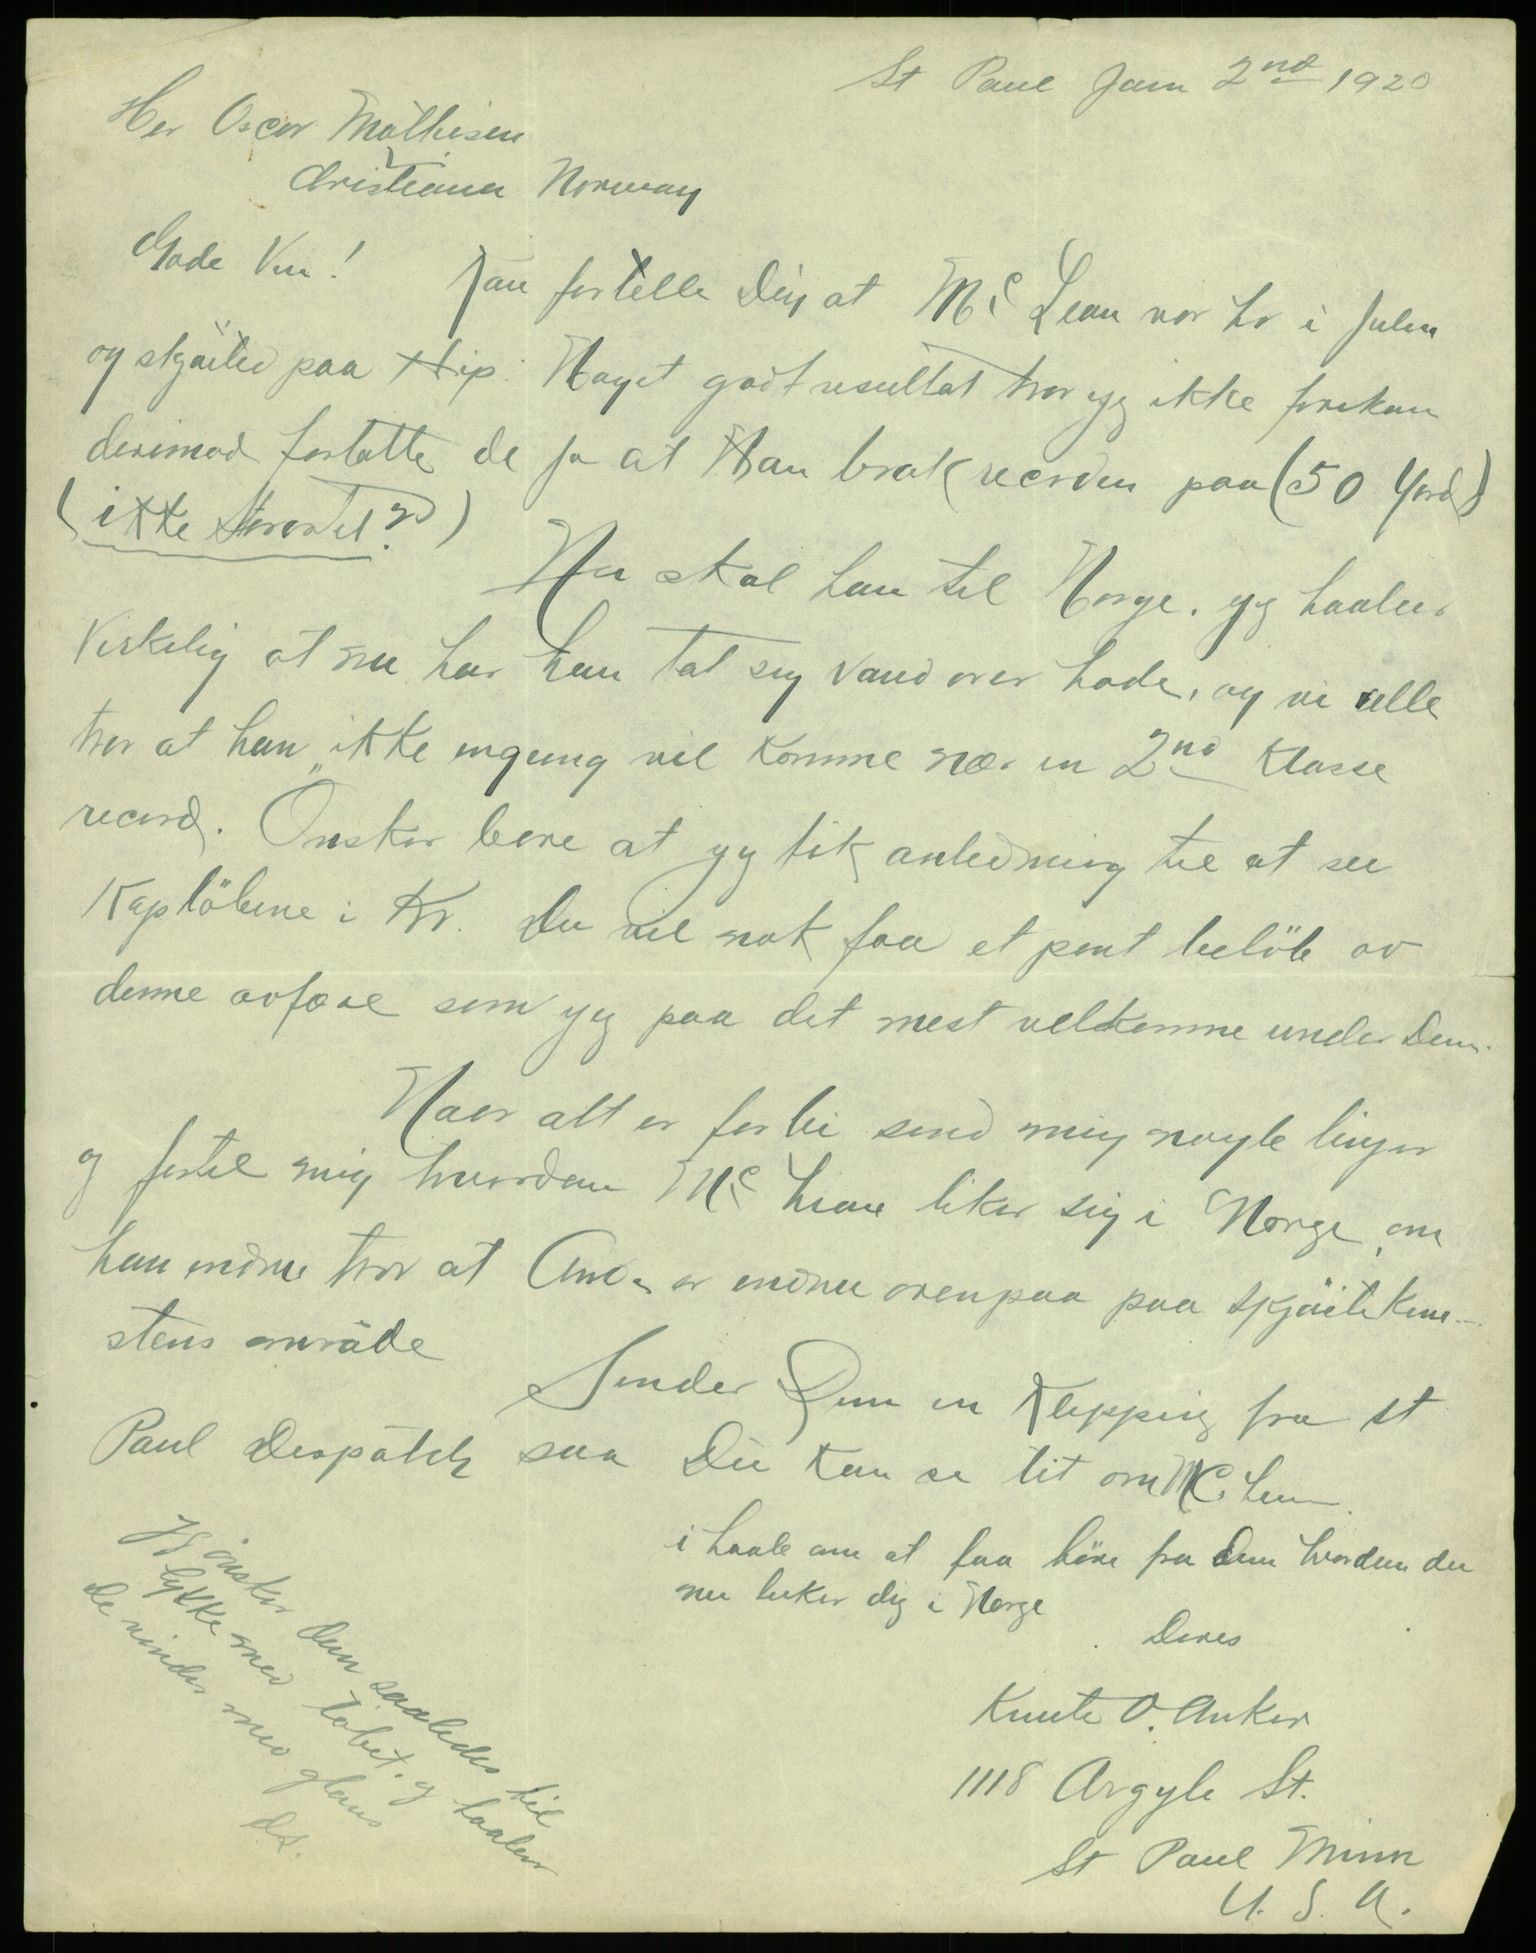 St Paul Jan 2nd 1920
Her Oscar Mathisen
Cristiania Norway
Gode Ven! Kan fortelle Dig at Mc Lean var her i Julen
og skjöited paa Hip. Noget godt resultat tror jeg ikke forekom
derimod fortalte de jo at Han brak recorden paa (50 Yards)
(ikke stoort?)
Nu skal han til Norge. jeg haaber
Virkelig at nu har han tat sig vand over hode, og vi alle
tror at han ikke engang vil komme nær en 2nd Klasse
record. Onsker bare at jeg fik anledning til at see
Kaplöbene i Kr. Du vil nok faa et pent belöb av
denne avfære som jeg paa det mest velkomne under Dem.
Naar alt er forbi send mig nogle linjer
og fortel mig hvordan Mc Lean liker sig i Norge, om
han endnu tror at Am. er endnu ovenpaa paa skjöitekun-
stens område
Sender Dem en Klipping fra St
Paul Dispatch saa Du kan se lit om Mc Lean.
i haab om at faa höre fra Dem hvordan du
nu liker dig i Norge
Deres
Knute O. Anker
1118 Argyle St.
St Paul Minn
U. S. A.
Jeg önsker Dem saaledes til
lykke med löbet, og haaber
De vinder med glans
ds.